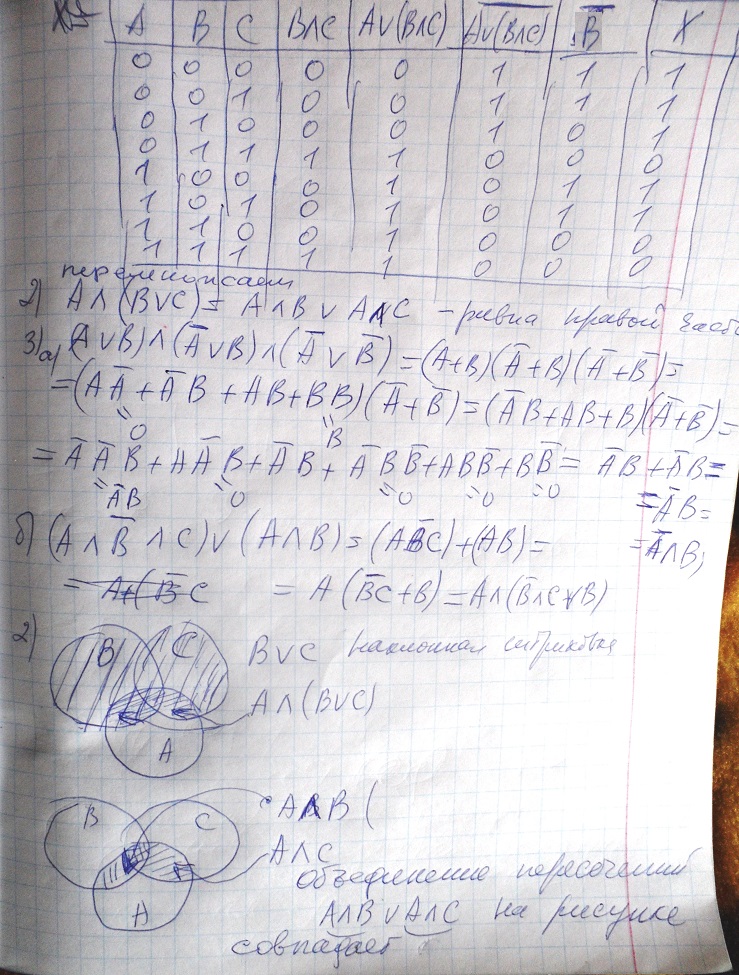 A B C B∧C A∨(B∧C) A̅∨̅(̅B̅∧̅C̅)̅ B̅ X
0 0 0 0 0 1 1 1
0 0 1 0 0 1 1 1
0 1 0 0 0 1 0 1
0 1 1 1 1 0 0 0
1 0 0 0 1 0 1 1
1 0 1 0 1 0 1 1
1 1 0 0 1 0 0 0
1 1 1 1 1 0 0 0
2) A∧(B∨C)= A∧B ∨ A∧C - равна правой части
3) а) (A∨B)∧(A̅∨B)∧(A̅∨B̅)=(A+B)(A̅+B)(A̅+B̅)=
=(AA̅+A̅B+AB+BB)(A̅+B̅)=(A̅B+AB+B)(A̅+B̅)=
=0 =B
=A̅A̅B+AA̅B+A̅B+A̅BB̅+ABB̅+BB̅= A̅B+A̅B=
=A̅B =0 =0 =0 =0 =A̅B=
=A̅∧B;
б) (A∧B̅∧C)∨(A∧B)=(AB̅C)+(AB)=
= A+(B̅C = A(B̅C+B)=A∧(B̅∧C∨B)
2)
B C B∨C наклонная штриховка
A∧(B∨C)
A
A∧B (
B C
A∧C
объединение пересечений
A
A∧B ∨ A∧C на рисунке
совпадает